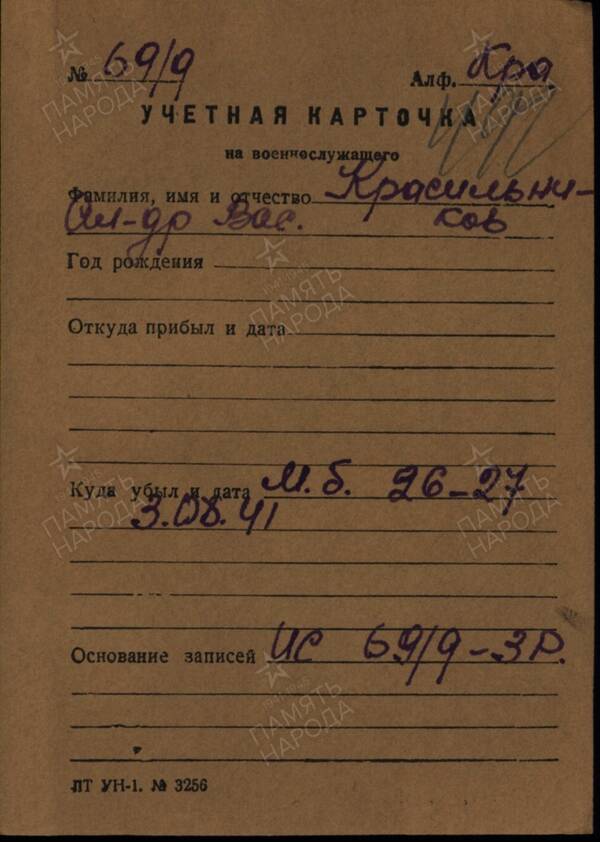 № 69/9 Алф. Кра
УЧЕТНАЯ КАРТОЧКА
на военнослужащего
Фамилия, имя и отчество Красильни-
Ал-др Вас. ков
Год рождения
Откуда прибыл и дата
Куда убыл и дата М.б. 26-27
3.08.41
Основание записей ИС 69/9-3р.
ЛТ УН-1. № 3256
ПАМЯТЬ НАРОДА
ПАМЯТЬ НАРОДА
ПАМЯТЬ НАРОДА
ПАМЯТЬ НАРОДА
ПАМЯТЬ НАРОДА
ПАМЯТЬ НАРОДА